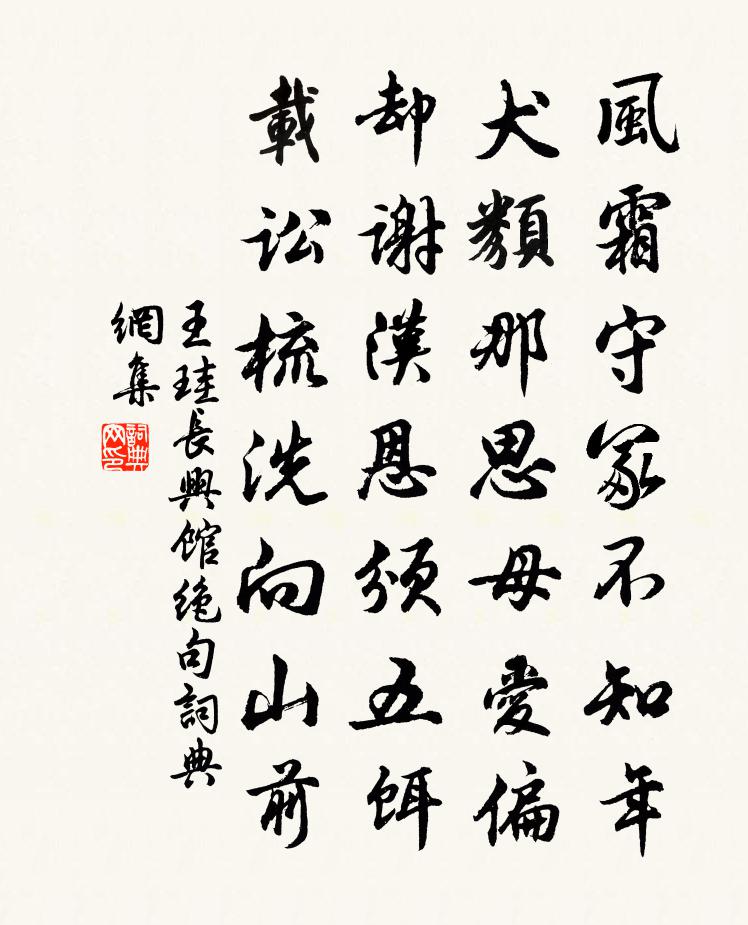 風霜守冢不知年
犬類那思母愛偏
却謝漢恩頒五餌
載訟梳洗向山前
王珪長興館絶句詞典
網集
詞典網印